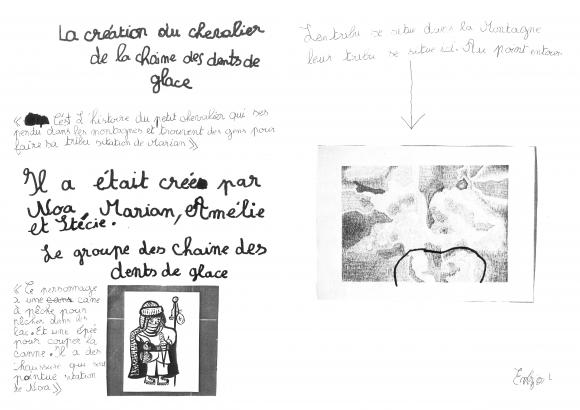 La création du chevalier
de la chaine des dents de
glace
« C'est L'histoire du petit chevalier qui ses
perdu dans les montagnes et trouvent des gens pour
faire sa tribu sitation de Marian »
Il a était créé par
Noa, Marian, Amélie
et Stécie.
Le groupe des chaine des
dents de glace
« Ce personnage
a une cane
à pêche pour
pêcher dans des
lac. Et une épée
pour couper la
canne. Il a des
chaussure qui son
pointue sitation
de Noa »
Leu tribu se situe dans la Montagne
leur tribu se situe ici. Au point entourer
Enzo L